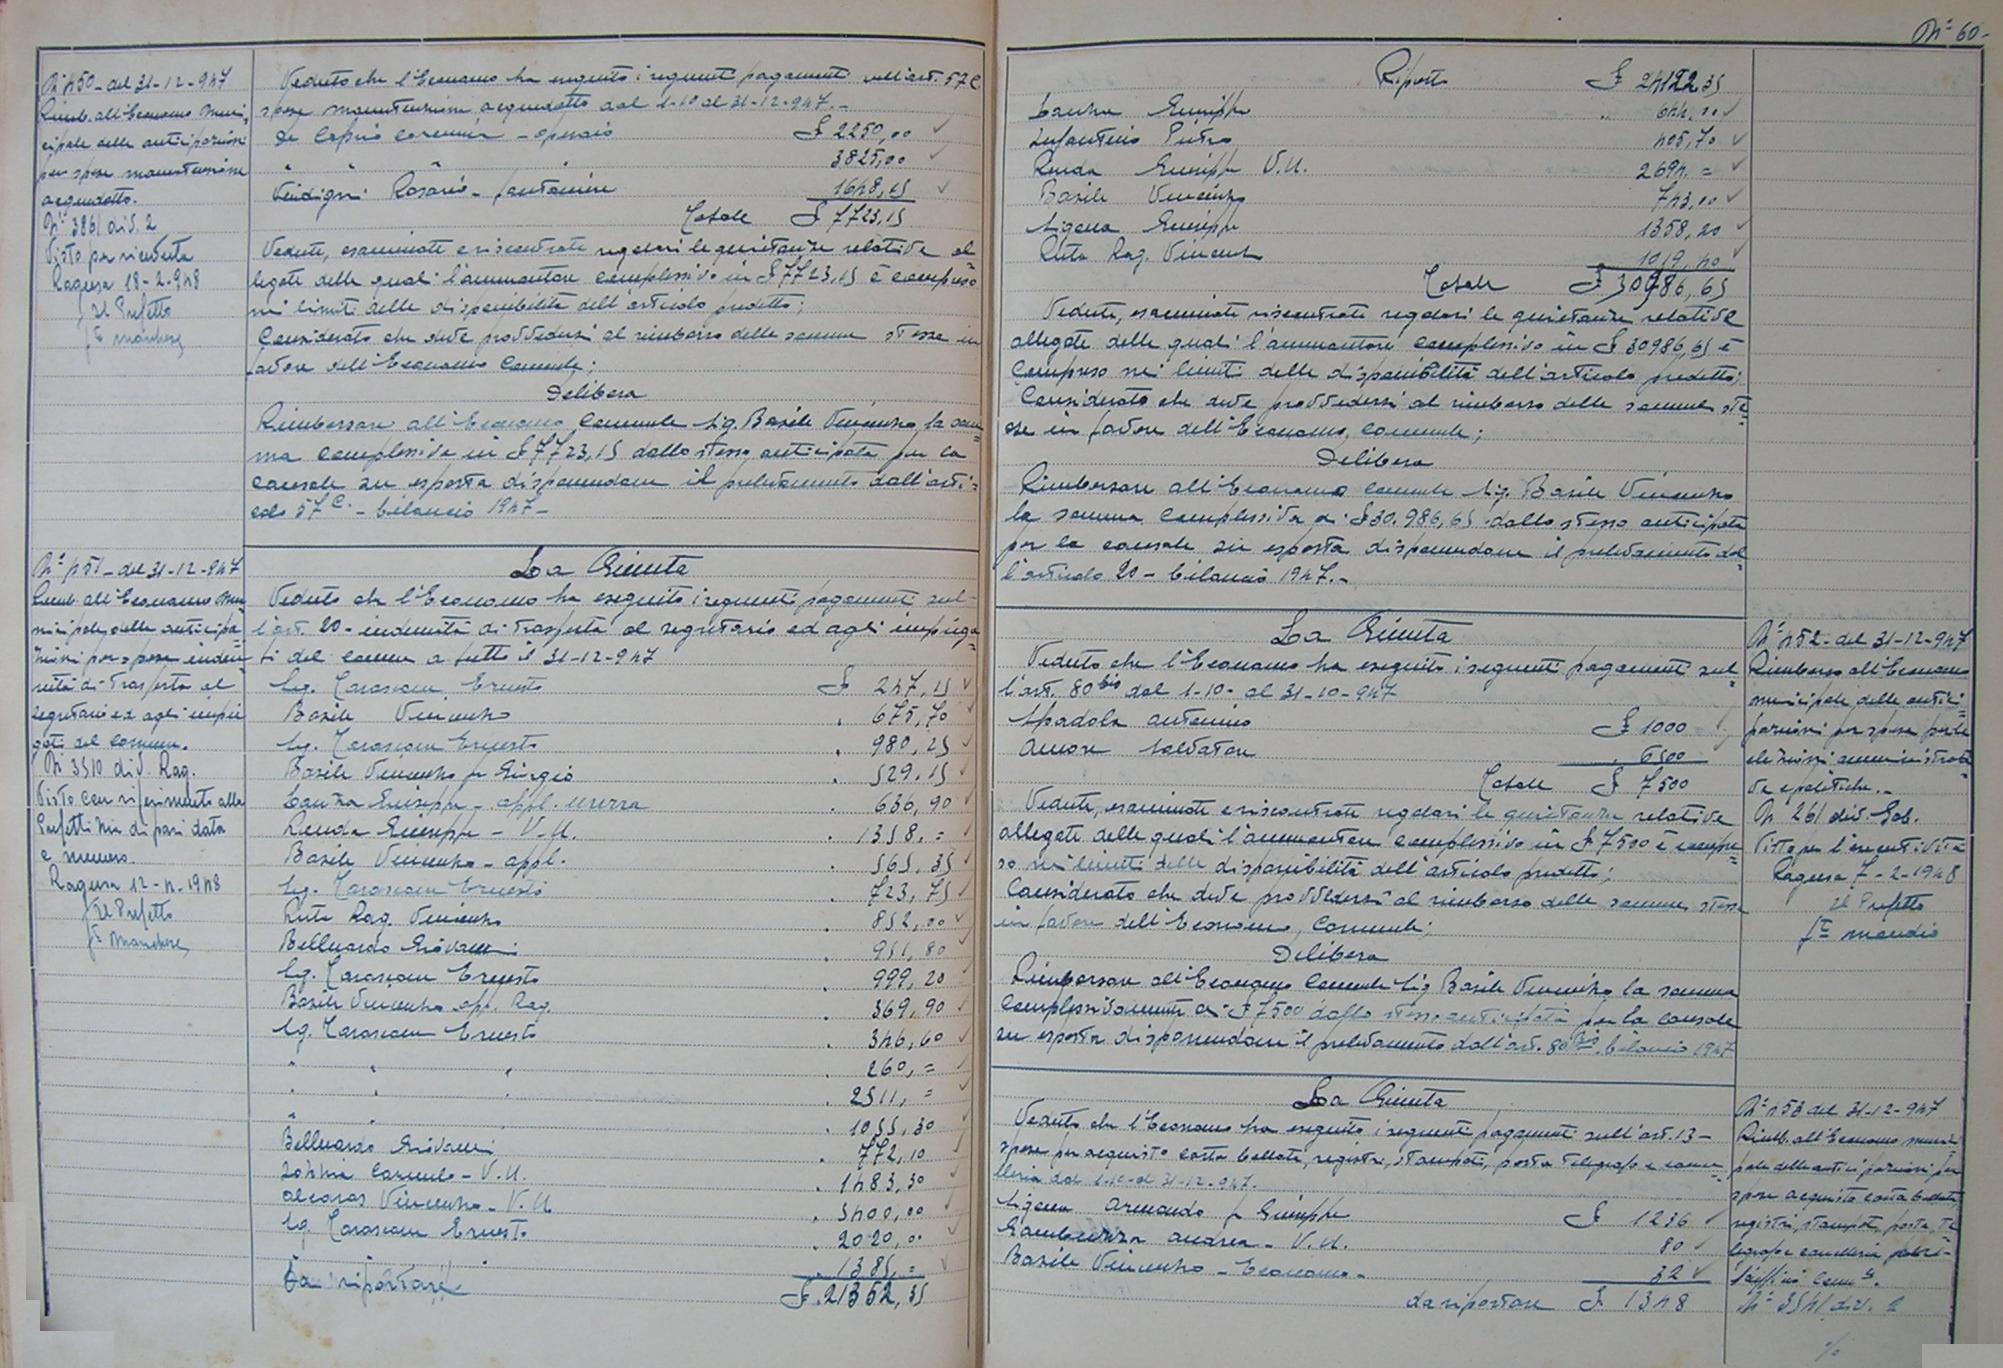 N° 60-
N° 450 - del 31-12-947
Rimb. all'Economo Muni-
cipale delle anticipazioni
per spese manutenzione
acquedotto.
N° 3861 div. 2
Visto per ricevuta
Ragusa 18-2-948
p. Il Prefetto
Veduto che l'Economo ha eseguito i seguenti pagamenti sull'art. 57 C.
spese manutenzione acquedotto dal 1-10 al 31-12-947.-
De Caprio - operaio £ 2250,00
" 3825,00
Rosario - fontaniere 1648,15
Totale £ 7723,15
Vedute, esaminate e riscontrate regolari le quietanze relative al
legate delle quali l'ammontare complessivo in £ 7723,15 è compreso
nei limiti delle disponibilità dell'articolo predetto;
Considerato che deve provvedersi al rimborso delle somme stesse in
favore dell'Economo Comunale;
Delibera
Rimborsare all'Economo Comunale Sig. Basile Vincenzo la som=
ma complessiva in £ 7723,15 dallo stesso anticipata per la
causale su esposta disponendone il prelevamento dall'arti=
colo 57 C. - bilancio 1947 -
N° 451 - del 31-12-947
Rimb. all'Economo Mu
nicipale delle anticipa
zioni per spese inden=
nità di trasferta al
segretario ed agli impie
gati del comune.
N° 3510 div. Rag.
Visto con riferimento alla
Prefettizia di pari data
e numero.
Ragusa 12-4-1948
p. Il Prefetto
La Giunta
Veduto che l'Economo ha eseguito i seguenti pagamenti sul-
l'art. 20 - indennità di trasferta al segretario ed agli impiega
ti del comune a tutto il 31-12-947
Sig. Ernesto £ 247,15
Basile Vincenzo " 675,70
Sig. Ernesto " 980,25
Basile Vincenzo fu Giorgio " 529,15
Giuseppe - appl. " 636,90
Renda Giuseppe - V.U. " 1358,=
Basile Vincenzo - appl. " 565,35
Sig. Ernesto " 723,75
Rag. Vincenzo " 852,00
Belluardo Giovanni " 951,80
Sig. Ernesto " 999,20
Basile Vincenzo app. Rag. " 369,90
Sig. Ernesto " 346,60
" " " " 260,=
" " " " 2511,=
" " " 1055,30
Belluardo Giovanni " 772,10
Carmelo - V.U. " 1483,30
Vincenzo - V.U. " 3400,00
Sig. Ernesto " 2020,00
" 1385,=
Da riportare £. 21352,35
Riporto £ 24122,35
Giuseppe " 644,00
Infantino Pietro 405,70
Renda Giuseppe V.U. 2694.=
Basile Vincenzo 743,00
Ligena Giuseppe 1358,20
Rag. Vincenzo 1019,40
Totale £ 30986,65
Vedute, esaminate riscontrate regolari le quietanze relative
allegate delle quali l'ammontare complessivo in £ 30986,65 è
compreso nei limiti delle disponibilità dell'articolo predetto;
Considerato che deve provvedersi al rimborso delle somme ste
se in favore dell'Economo comunale;
Delibera
Rimborsare all'Economo comunale Sig. Basile Vincenzo
la somma complessiva di £ 30.986,65 dallo stesso anticipata
per la causale su esposta disponendone il prelevamento dal
l'articolo 20 - bilancio 1947.-
La Giunta
Veduto che l'Economo ha eseguito i seguenti pagamenti sul=
l'art. 80 bis dal 1-10- al 31-10-947
Spadola Antonino £ 1000
Amore Salvatore " 6500
Totale £ 7500
Vedute, esaminate e riscontrate regolari le quietanze relative
allegate delle quali l'ammontare complessivo in £ 7500 è compre=
so nei limiti delle disponibilità dell'articolo predetto;
Considerato che deve provvedersi al rimborso delle somme stesse
in favore dell'Economo Comunale;
Delibera
Rimborsare all'Economo Comunale Sig. Basile Vincenzo la somma
complessivamente di £ 7500 dallo stesso anticipata per la causale
su esposta disponendone il prelevamento dall'art. 80 bis bilancio 1947
N° 452 - del 31-12-947
Rimborso all'Economo
municipale delle antici=
pazioni per spese per le
elezioni amministrati
ve e politiche.-
N. 261 div. Gab.
Visto per l'esecutività
Ragusa 7-2-1948
Il Prefetto
La Giunta
Veduto che l'Economo ha eseguito i seguenti pagamenti sull'art. 13-
spese per acquisto carta bollata, registri, stampati, posta telegrafo e cancel
leria dal 1-10-al 31-12-947.
Ligena Armando fu Giuseppe £ 1236
Andrea - V.U. 80
Basile Vincenzo - Economo - 32
da riportare £ 1348
N° 453 del 31-12-947
Rimb. all'Economo munici
pale delle anticipazioni per
spese acquisto carta bollata
registri, stampati, posta, te
legrafo e cancelleria per l'-
ufficio Com.le.
N° 3541 div. 2
%